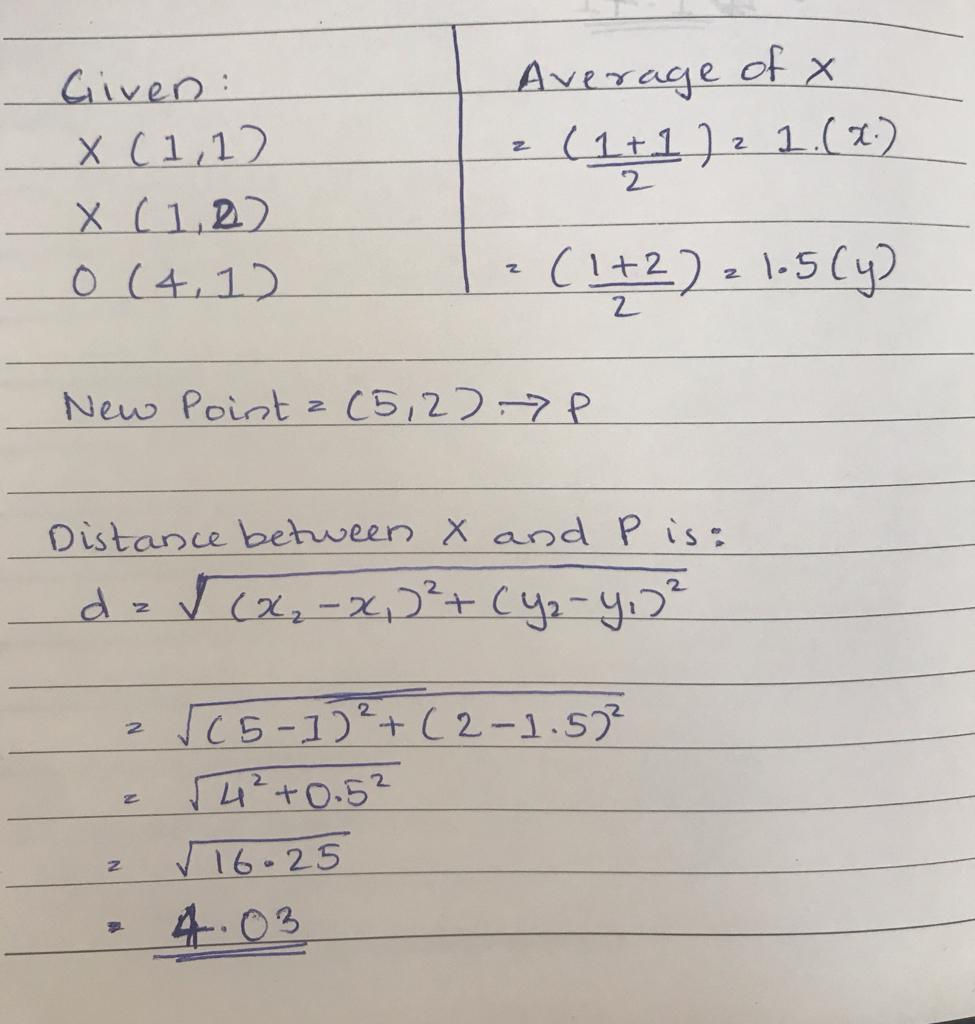 Given:
X (1,1)
X (1,2)
O (4,1)
Average of x
= (1+1/2) = 1.(x.)
= (1+2/2) = 1.5(y)
New Point = (5,2) → P
Distance between X and P is:
d = √(x₂-x₁)²+(y₂-y₁)²
= √(5-1)²+(2-1.5)²
= √4²+0.5²
= √16.25
= 4.03